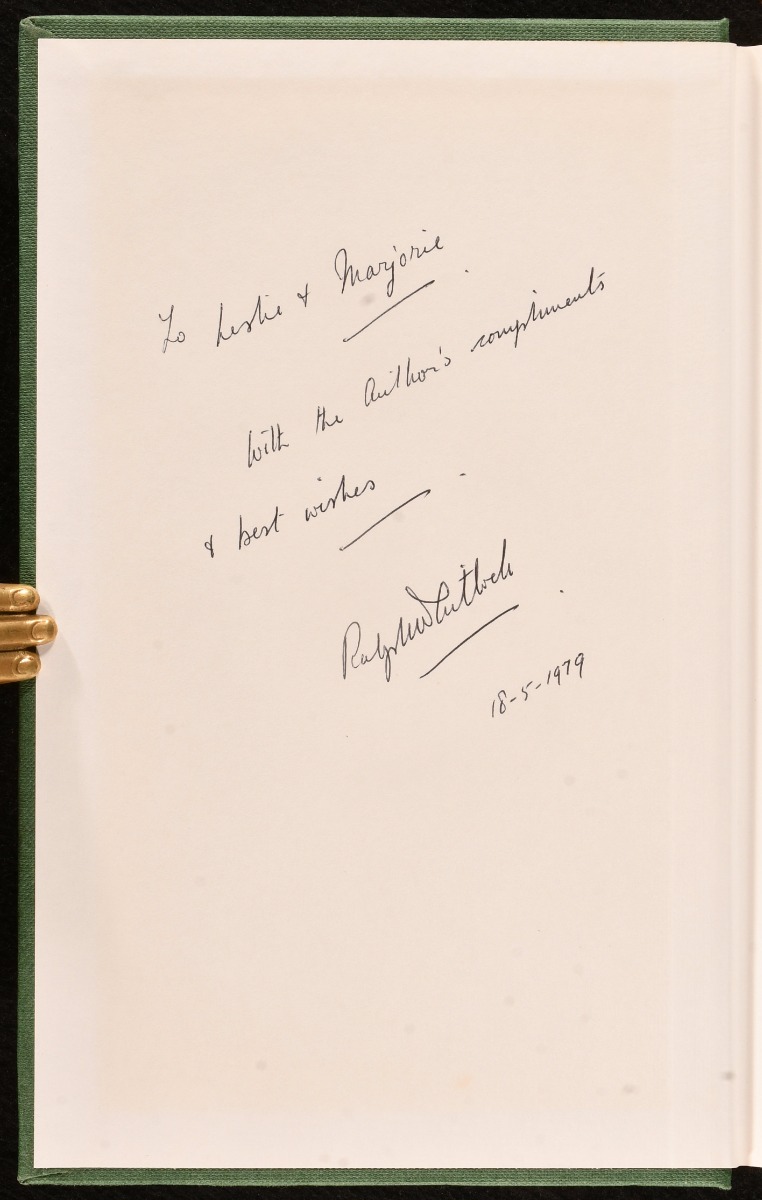 To Leslie & Marjorie.
With the Author's compliments
& best wishes.
Ralph Whitlock.
18-5-1979